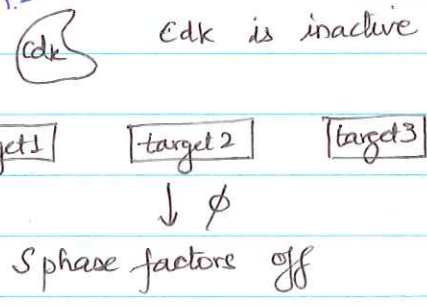 Cdk Cdk is inactive
get1 target 2 target3
↓ ϕ
S phase factors off